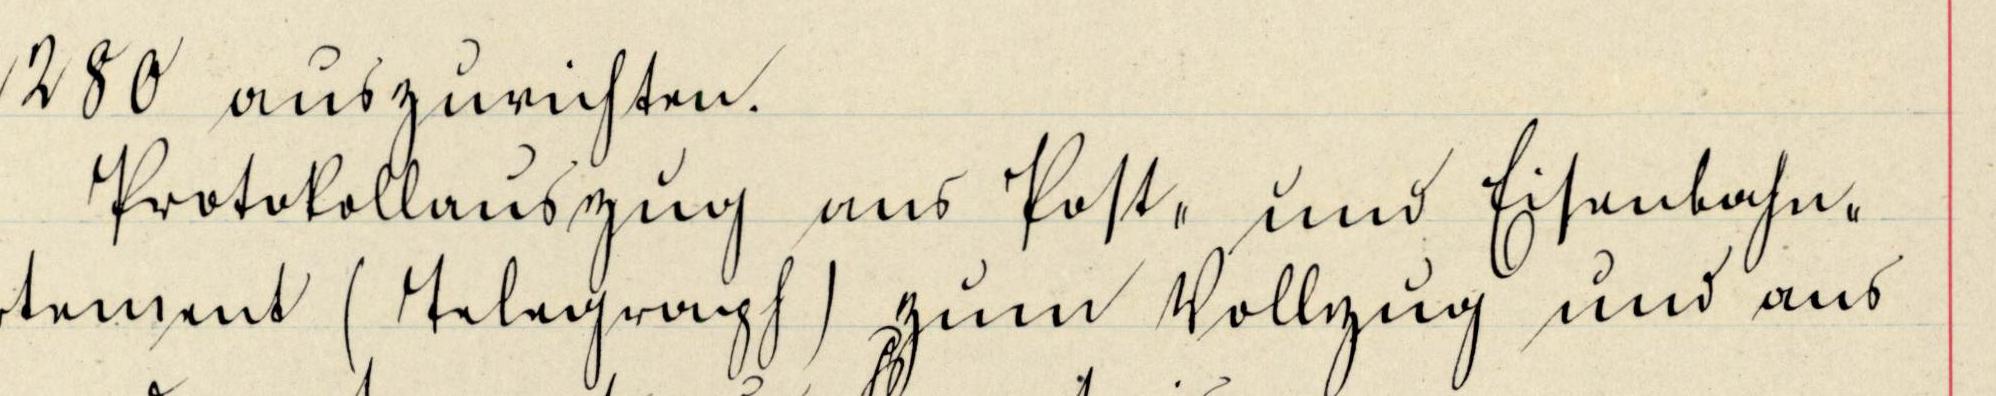 1280 auszurichten.
Protokollauszug ans Post- und Eisenbahn-
tement (Telegraph) zum Vollzug und ans